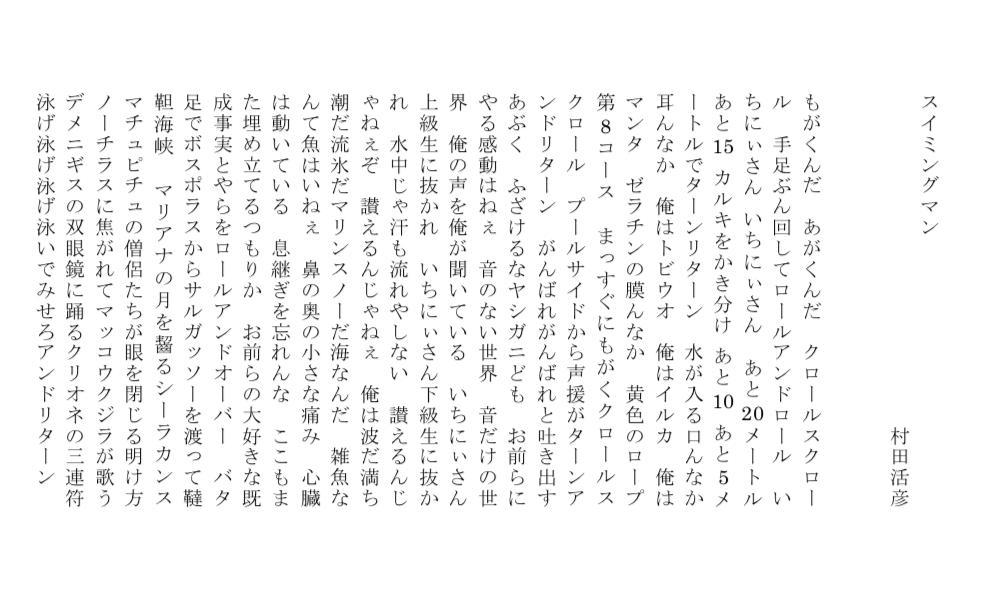 スイミングマン
村田活彦
もがくんだ　あがくんだ　クロールスクロー
ル　手足ぶん回してロールアンドロール　い
ちにぃさん　いちにぃさん　あと20メートル
あと15　カルキをかき分け　あと10　あと5メ
ートルでターンリターン　水が入る口んなか
耳んなか　俺はトビウオ　俺はイルカ　俺は
マンタ　ゼラチンの膜んなか　黄色のロープ
第8コース　まっすぐにもがくクロールス
クロール　プールサイドから声援がターンア
ンドリターン　がんばれがんばれと吐き出す
あぶく　ふざけるなヤシガニども　お前らに
やる感動はねぇ　音のない世界　音だけの世
界　俺の声を俺が聞いている　いちにぃさん
上級生に抜かれ　いちにぃさん下級生に抜か
れ　水中じゃ汗も流れやしない　讃えるんじ
ゃねぇぞ　讃えるんじゃねぇ　俺は波だ満ち
潮だ流氷だマリンスノーだ海なんだ　雑魚な
んて魚はいねぇ　鼻の奥の小さな痛み　心臓
は動いている　息継ぎを忘れんな　ここもま
た埋め立てるつもりか　お前らの大好きな既
成事実とやらをロールアンドオーバー　バタ
足でボスポラスからサルガッソーを渡って韃
靼海峡　マリアナの月を齧るシーラカンス
マチュピチュの僧侶たちが眼を閉じる明け方
ノーチラスに焦がれてマッコウクジラが歌う
デメニギスの双眼鏡に踊るクリオネの三連符
泳げ泳げ泳げ泳いでみせろアンドリターン